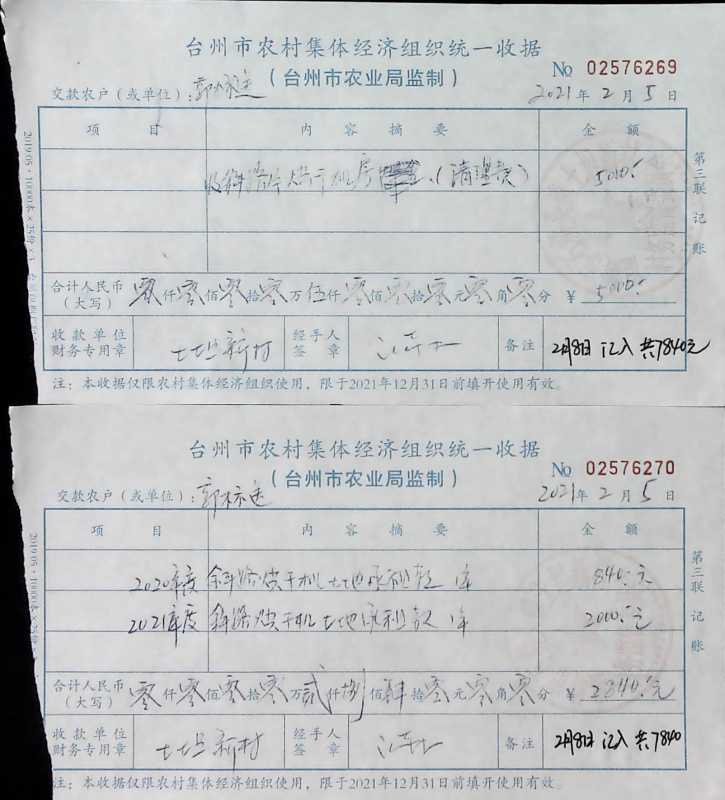 台州市农村集体经济组织统一收据
(台州市农业局监制)
No 02576269
交款农户(或单位):郭
2021年2月5日
项 目 内 容 摘 要 金 额
房 (清理费) 5000.-
合计人民币(大写) 零仟零佰零拾零万伍仟零佰零拾零元零角零分 ¥ 5000.-
收款单位财务专用章 新村 经手人签章 备注 2月8日记入 共7840元
注:本收据仅限农村集体经济组织使用,限于2021年12月31日前填开使用有效。
第三联 记账
台州市农村集体经济组织统一收据
(台州市农业局监制)
No 02576270
交款农户(或单位):郭
2021年2月5日
项 目 内 容 摘 要 金 额
2020年度 干机土地承租款 1年 840.-元
2021年度 干机土地承租款 1年 2000.-元
合计人民币(大写) 零仟零佰零拾零万贰仟捌佰肆拾零元零角零分 ¥ 2840.-元
收款单位财务专用章 新村 经手人签章 备注 2月8日记入 共7840
注:本收据仅限农村集体经济组织使用,限于2021年12月31日前填开使用有效。
第三联 记账